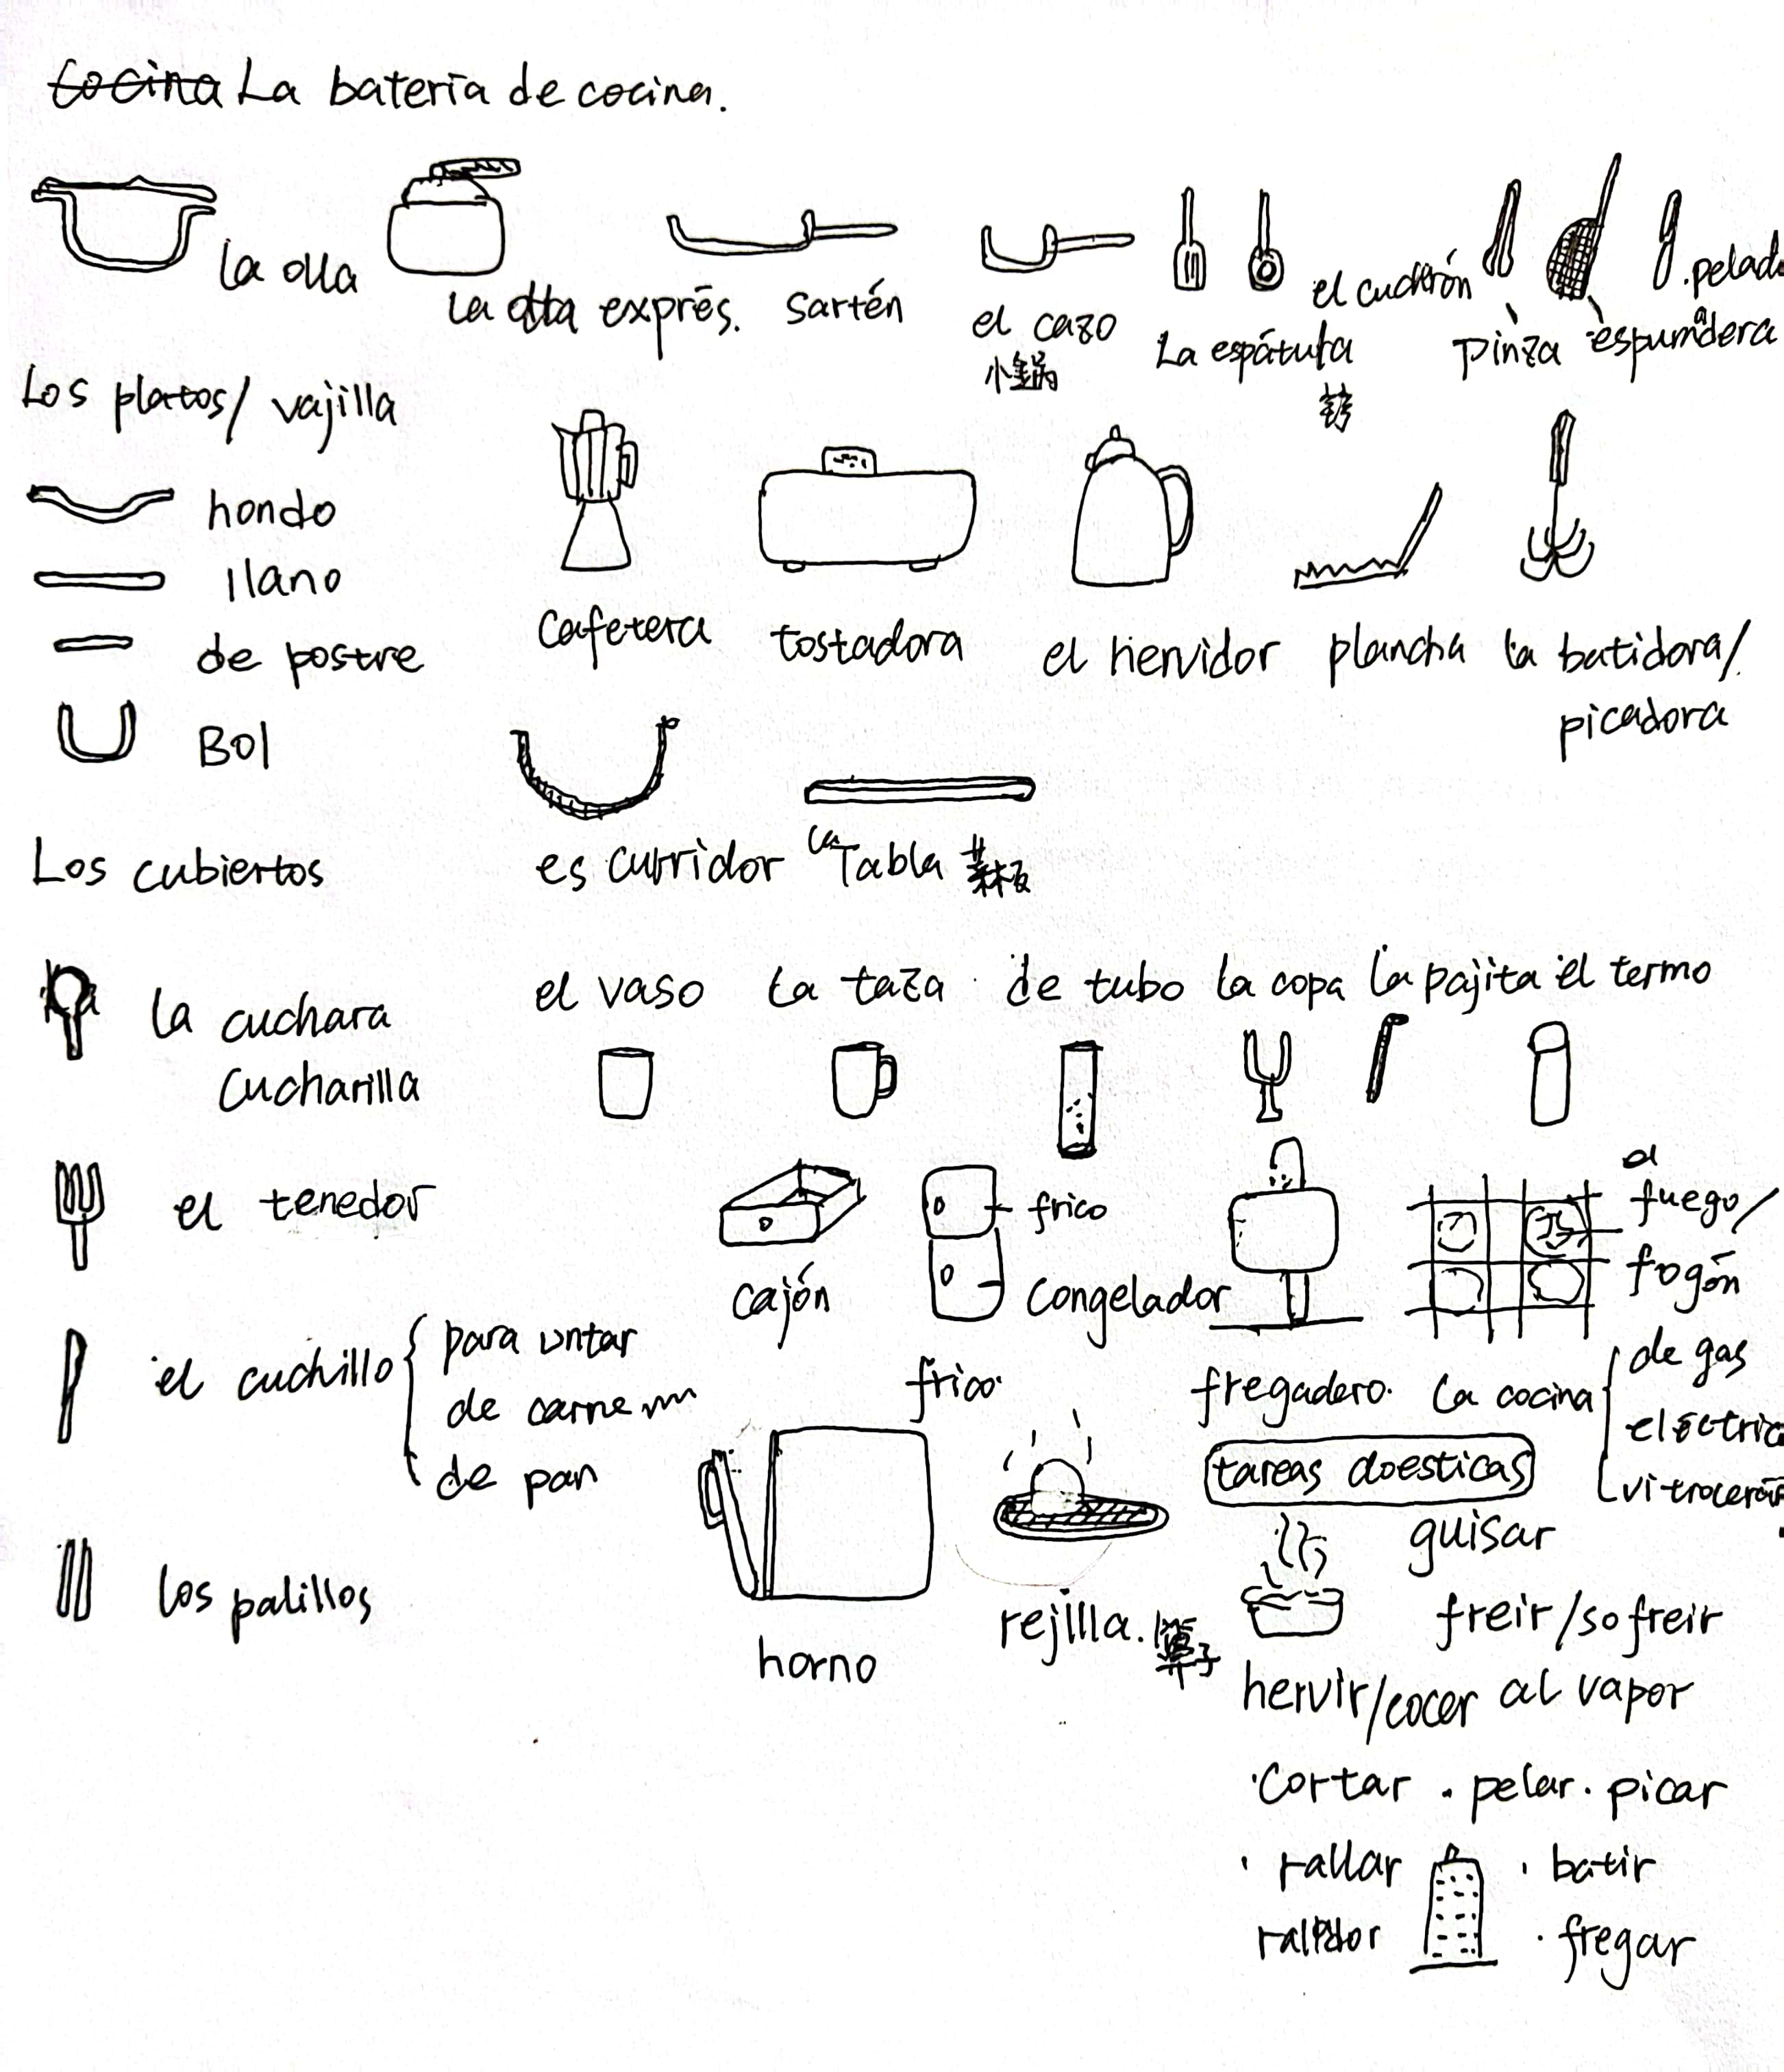 Cocina La bateria de cocina.
la olla
La olla exprés.
sartén
el cazo
小锅
La espátula
el cucharón
pinza
espumadera
pelad
Los platos/vajilla
hondo
llano
de postre
Bol
cafetera
tostadora
el hervidor
plancha
la batidora/
picadora
es curridor
la Tabla 菜板
Los cubiertos
la cuchara
cucharilla
el tenedor
el cuchillo
para untar
de carne
de pan
los palillos
el vaso
La taza
de tubo
la copa
la pajita
el termo
cajón
frico
congelador
frico.
fregadero.
el
fuego/
fogón
La cocina
de gas
eléctric
vitrocerám
horno
rejilla. 箅子
tareas doesticas
guisar
freir/sofreir
hervir/cocer al vapor
·Cortar · pelar · picar
· rallar
· batir
rallador
· fregar